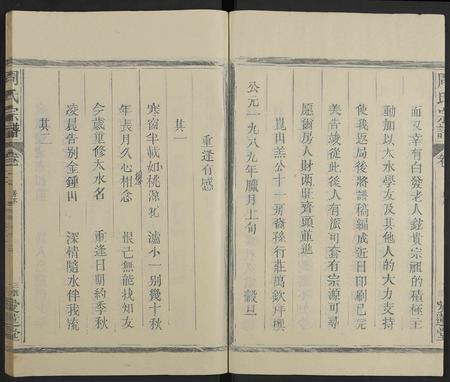 周氏宗譜
卷
而又幸有白發老人鍾貴宗祖的積極主
動加以大水學友及其他人的大力支持
使我返局後將譜稿編成近日印刷已完
美告竣從此後人有派可查有宗源可尋
愿爾房人財兩旺齊頭並進
崑山羔公十一房裔孫行莊萬欽拜撰
公元一九八九年臘月上旬 穀旦
重逢有感
其一
寒窗半載如桃源 滬小一別幾十秋
年長月久心相念 恨己無能找知友
今歲重修大水名 重逢日期約季秋
其二
凌晨告別金鍾山 深情隨水伴我流
周氏宗譜
卷
愛蓮堂